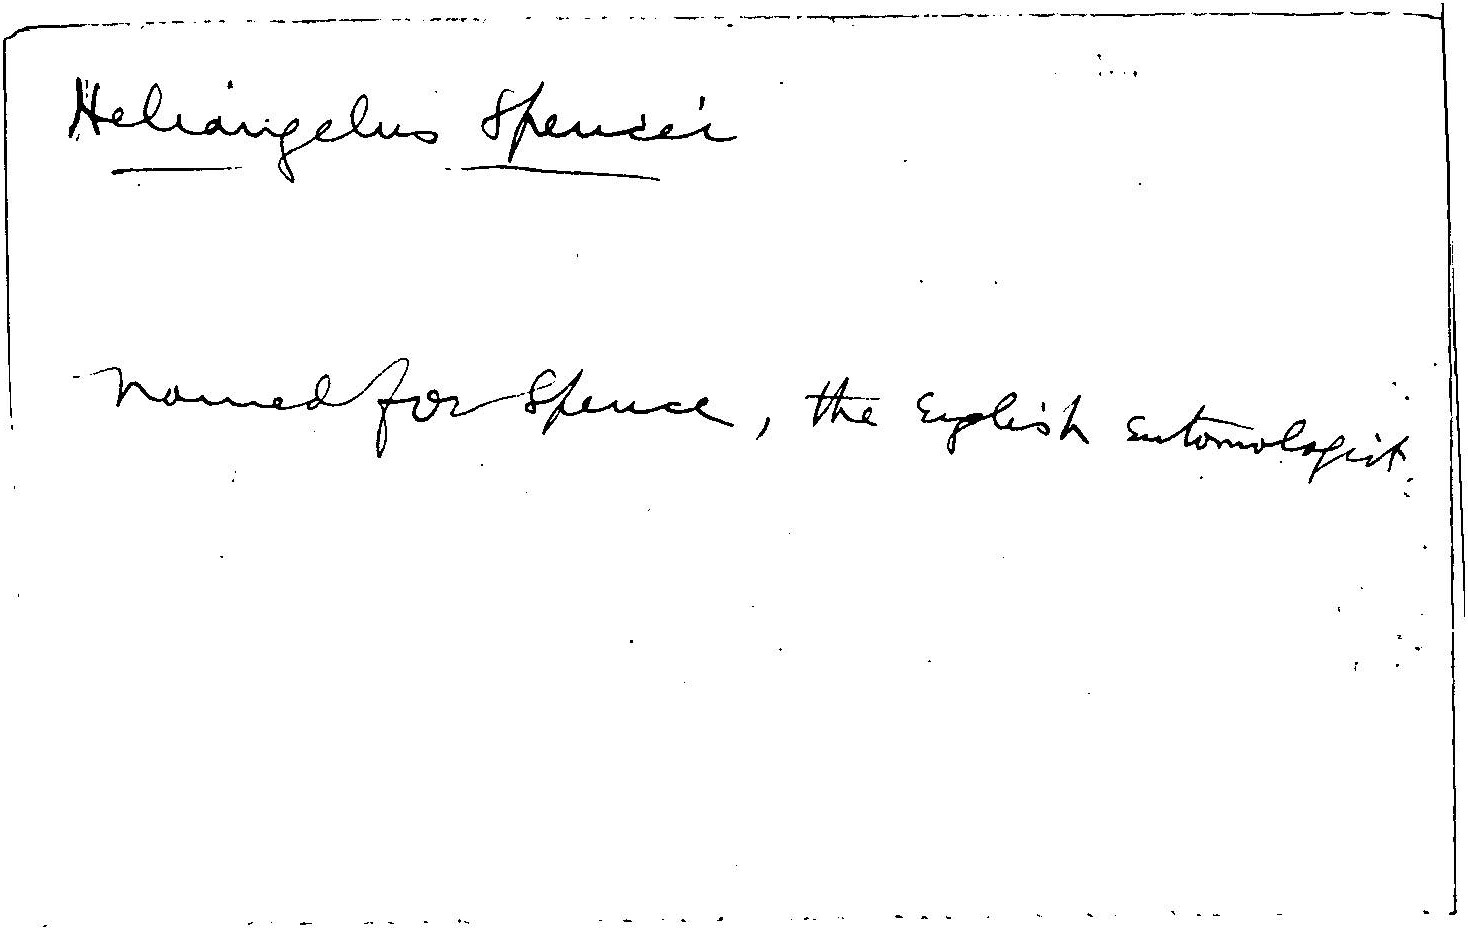 Heliangelus Spencei
Named for Spence, the English Entomologist.